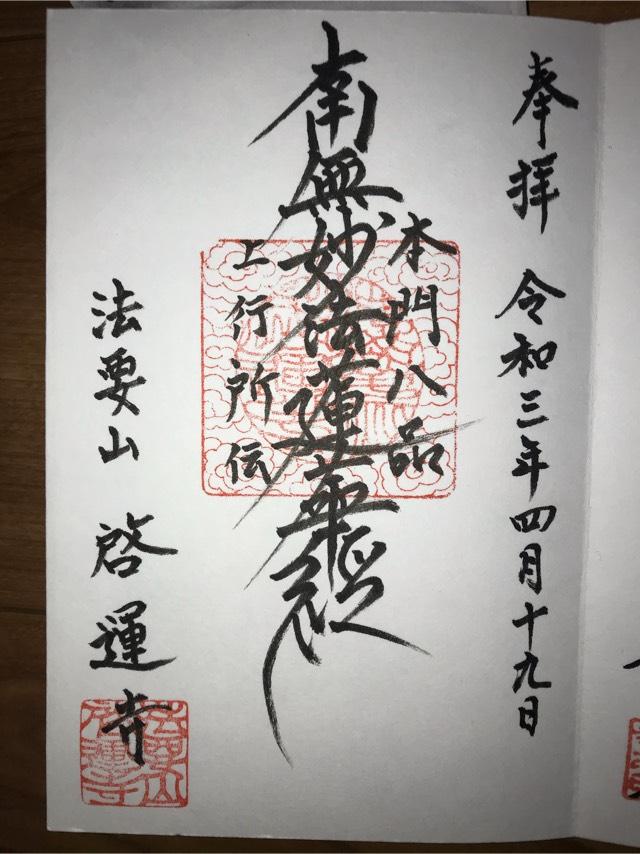 奉拝 令和三年四月十九日
本門八品
南無妙法蓮華経
上行所伝
法要山 啓運寺
法要山
啓運寺